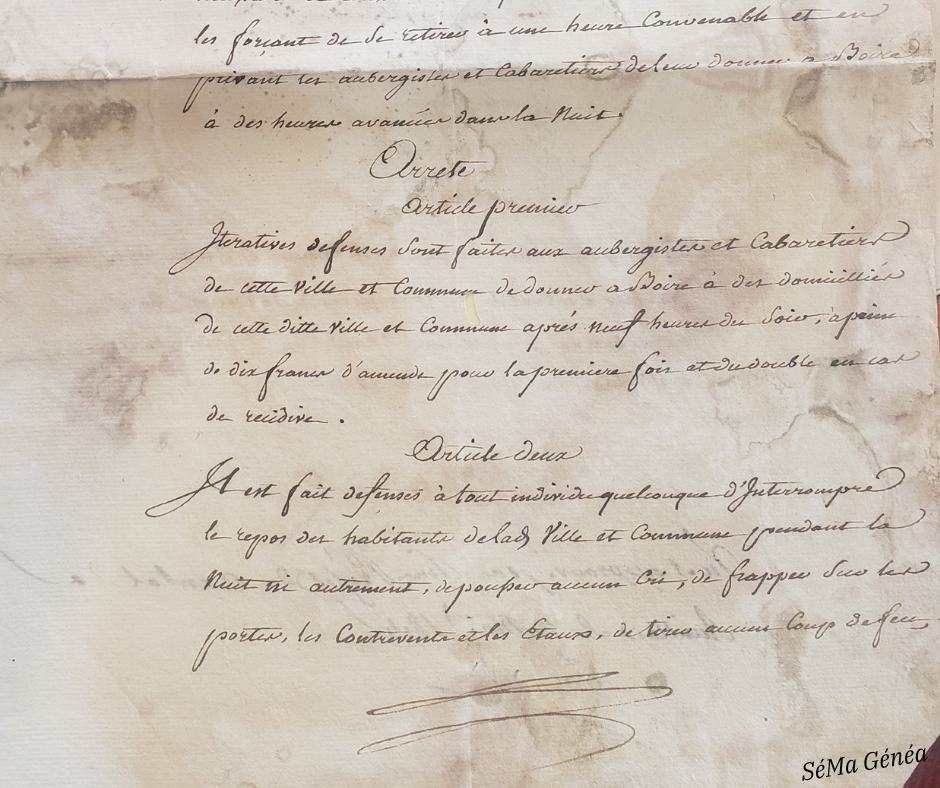 les forçant de se retirer à une heure Convenable et en
privant les aubergistes et Cabaretiers de leur donner a Boire
à des heures avancées dans la Nuit.
Arrete
Article premier
Iteratives defenses sont faites aux aubergistes et Cabaretiers
de cette Ville et Commune de donner a Boire à des domiciliés
de cette ditte Ville et Commune aprés neuf heures du Soir, a peine
de dix francs d'amende pour la premiere fois et du double en cas
de recidive.
Article deux
Il est fait defenses à tout individu quelconque d'Interrompre
le repos des habitants de lad Ville et Commune pendant la
Nuit ni autrement, de pousser aucun Cri, de frapper sur les
portes, les Contrevents et les Etaux, de tirer aucun Coup de feu,
SéMa Généa